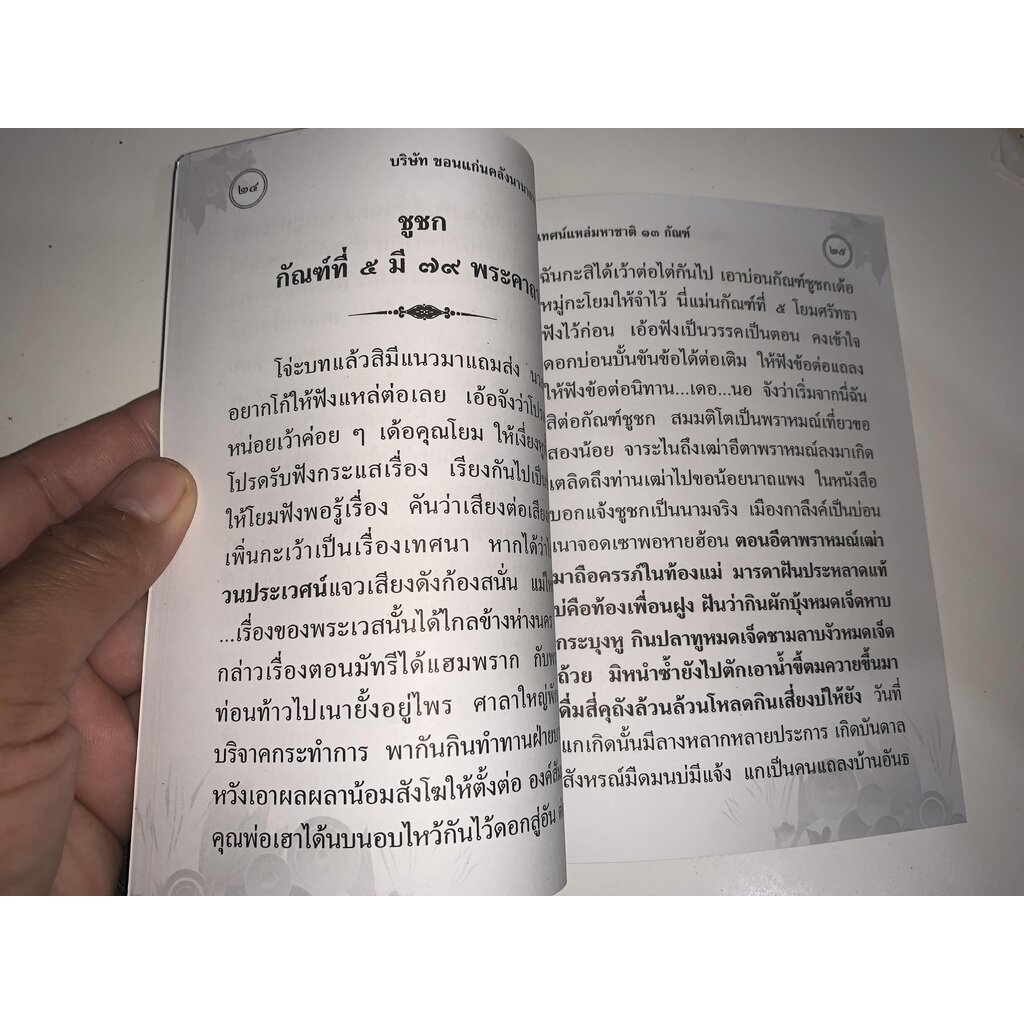 ๒๔
บริษัท ขอนแก่นคลังนานา
ชูชก
กัณฑ์ที่ ๕ มี ๗๙ พระคาถา
โจ่ะบทแล้วสิมีแนวมาแถมส่ง
อยากโก้ให้ฟังแหล่ต่อเลย เอ้อจังว่า
หน่อยเว้าค่อย ๆ เด้อคุณโยม ให้เงี่ยงหู
โปรดรับฟังกระแสเรื่อง เรียงกันไปเป็น
ให้โยมฟังพอรู้เรื่อง คันว่าเสียงต่อเสียง
เพิ่นกะเว้าเป็นเรื่องเทศนา หากได้ว่า
วนประเวศน์แจวเสียงดังก้องสนั่น
...เรื่องของพระเวสนั้นได้ไกลข้างห่างนคร
กล่าวเรื่องตอนมัทรีได้แฮมพราก
ท่อนท้าวไปเนายั้งอยู่ไพร ศาลาใหญ่
บริจาคกระทำการ พากันกินทำทานฝ่าย
หวังเอาผลผลาน้อมสังโฆให้ตั้งต่อ
คุณพ่อเฮาได้นบนอบไหว้กันไว้ดอกสู่อัน
เทศน์แหล่มหาชาติ ๑๓ กัณฑ์
๒๕
ฉันกะสิได้เว้าต่อไต่กันไป เอาบ่อนกัณฑ์ชูชกเด้อ
หมู่กะโยมให้จำไว้ นี่แม่นกัณฑ์ที่ ๕ โยมศรัทธา
ฟังไว้ก่อน เอ้อฟังเป็นวรรคเป็นตอน คงเข้าใจ
ดอกบ่อนบั้นขันข้อได้ต่อเติม ให้ฟังข้อต่อแถลง
ให้ฟังข้อต่อนิทาน...เดอ...นอ จังว่าเริ่มจากนี่ฉัน
สิต่อกัณฑ์ชูชก สมมติโตเป็นพราหมณ์เที่ยวขอ
สองน้อย จาระไนถึงเฒ่าอีตาพราหมณ์ลงมาเกิด
เตลิดถึงท่านเฒ่าไปขอน้อยนาถแพง ในหนังสือ
บอกแจ้งชูชกเป็นนามจริง เมืองกาลึงค์เป็นบ่อน
เนาจอดเซาพอหายฮ้อน ตอนอีตาพราหมณ์เฒ่า
มาถือครรภ์ในท้องแม่ มารดาฝันประหลาดแท้
บ่คือท้องเพื่อนฝูง ฝันว่ากินผักบุ้งหมดเจ็ดหาบ
กระบุงหู กินปลาทูหมดเจ็ดชามลาบงัวหมดเจ็ด
ถ้วย มิหนำซ้ำยังไปตักเอาน้ำขี้ตมควายขึ้นมา
ดื่มสี่คุถังล้วนล้วนโหลดกินเสี่ยงบ่ให้ยัง วันที่
แกเกิดนั้นมีลางหลากหลายประการ เกิดบันดาล
สังหรณ์มืดมนบ่มีแจ้ง แกเป็นคนแถลงบ้านอันธ